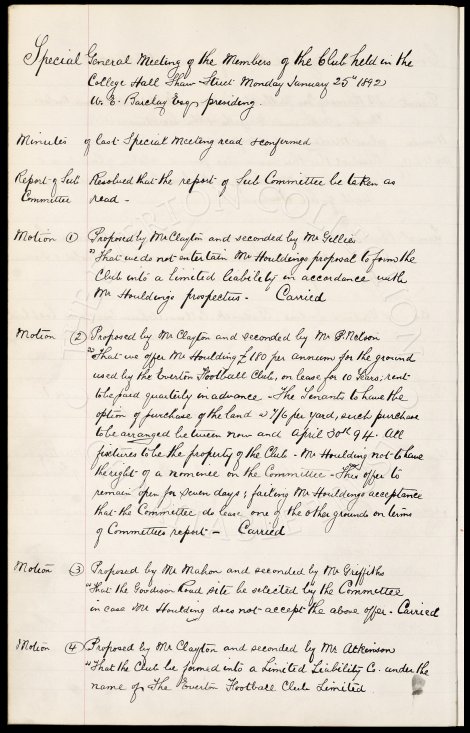 Special General Meeting of the Members of the Club held in the
College Hall Shaw Street Monday January 25th 1892
W. E. Barclay Esq presiding.
Minutes of last Special Meeting read & confirmed
Report of Sub Resolved that the report of Sub Committee be taken as
Committee read -
Motion ① Proposed by Mr Clayton and seconded by Mr Gillies
"That we do not entertain Mr Houldings proposal to form the
Club into a Limited liability in accordance with
Mr Houldings prospectus - Carried
Motion ② Proposed by Mr Clayton and seconded by Mr P. Nelson
"That we offer Mr Houlding £180 per annum for the ground
used by the Everton Football Club, on lease for 10 years; rent
to be paid quarterly in advance - The Tenants to have the
option of purchase of the land @ 7/6 per yard, such purchase
to be arranged between now and April 30th 94. All
fixtures to be the property of the Club - Mr Houlding not to have
the right of a nominee on the Committee - This offer to
remain open for seven days; failing Mr Houldings acceptance
that the Committee do lease one of the other grounds on terms
of Committees report - Carried
Motion ③ Proposed by Mr Mahon and seconded by Mr Griffiths
"That the Goodison Road site be selected by the Committee
in case Mr Houlding does not accept the above offer - Carried
Motion ④ Proposed by Mr Clayton and seconded by Mr Atkinson
"That the Club be formed into a Limited Liability Co. under the
name of The Everton Football Club Limited.